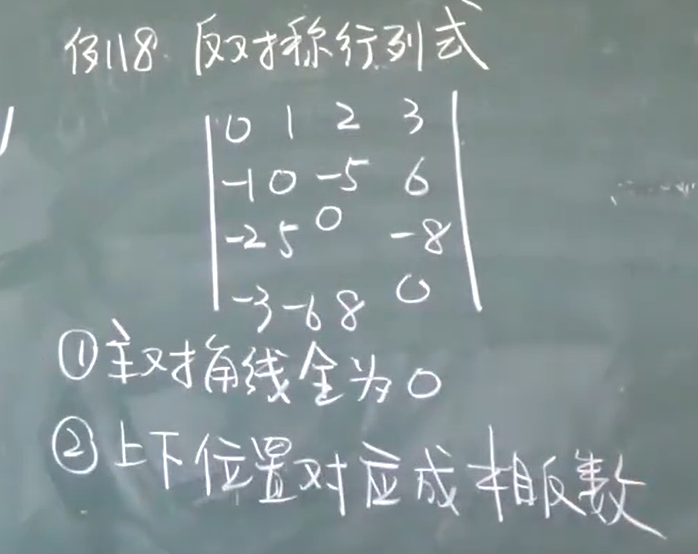 例118 反对称行列式
0 1 2 3
-1 0 -5 6
-2 5 0 -8
-3 -6 8 0
①主对角线全为0
②上下位置对应成相反数